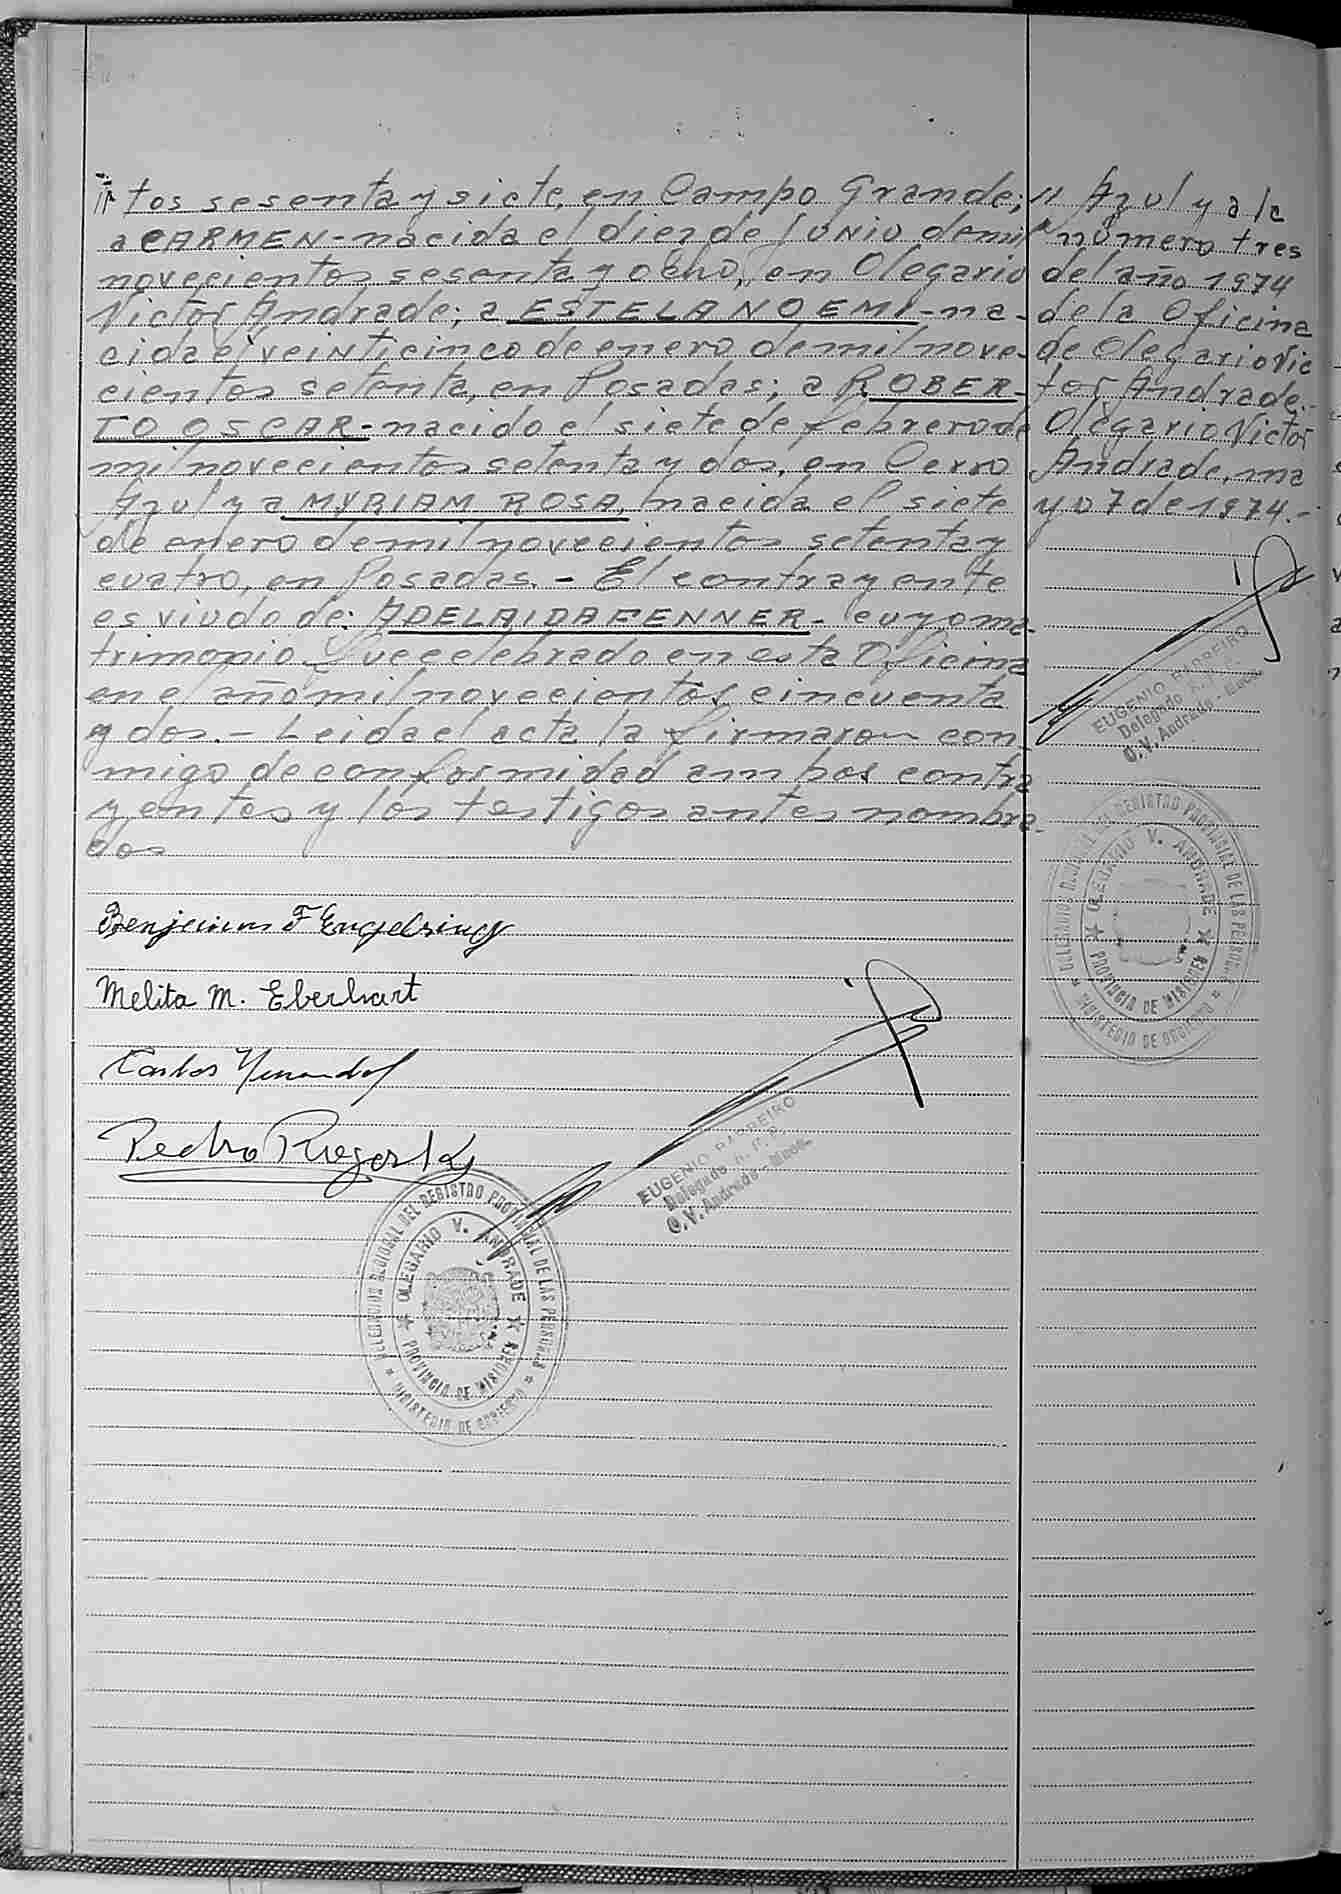 tos sesenta y siete, en Campo Grande;
a CARMEN - nacida el diez de Junio de mil
novecientos sesenta y ocho, en Olegario
Victor Andrade; a ESTELA NOEMI - na-
cida el veinticinco de enero de mil nove-
cientos setenta, en Posadas; a ROBER-
TO OSCAR - nacido el siete de febrero de
mil novecientos setenta y dos, en Cerro
Azul y a MYRIAM ROSA, nacida el siete
de enero de mil novecientos setenta y
cuatro, en Posadas. - El contrayente
es viudo de: ADELAIDA FENNER - cuyo ma-
trimonio fue celebrado en esta Oficina
en el año mil novecientos cincuenta
y dos. - Leida el acta la firmaron con-
migo de conformidad ambos contra
yentes y los testigos antes nombra-
dos
Benjamin F Engelsing
Melita M. Eberhart
Carlos
Pedro
EUGENIO BARREIRO
Delegado R. P. P.
O. V. Andrade - Mnes.
DELEGACION REGIONAL DEL REGISTRO PROVINCIAL DE LAS PERSONAS
OLEGARIO V. ANDRADE
PROVINCIA DE MISIONES
MINISTERIO DE GOBIERNO
" Azul y a la
número tres
del año 1974
de la Oficina
de Olegario Vic
tor Andrade.-
Olegario Victor
Andrade, ma
yo 7 de 1974.-
EUGENIO BARREIRO
Delegado R. P. P.
O. V. Andrade - Mnes.
DELEGACION REGIONAL DEL REGISTRO PROVINCIAL DE LAS PERSONAS
OLEGARIO V. ANDRADE
PROVINCIA DE MISIONES
MINISTERIO DE GOBIERNO